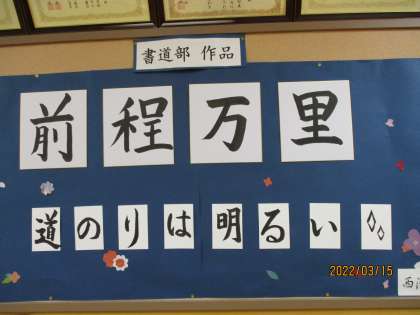 書道部 作品
前程万里
道のりは明るい
2022/03/15
西